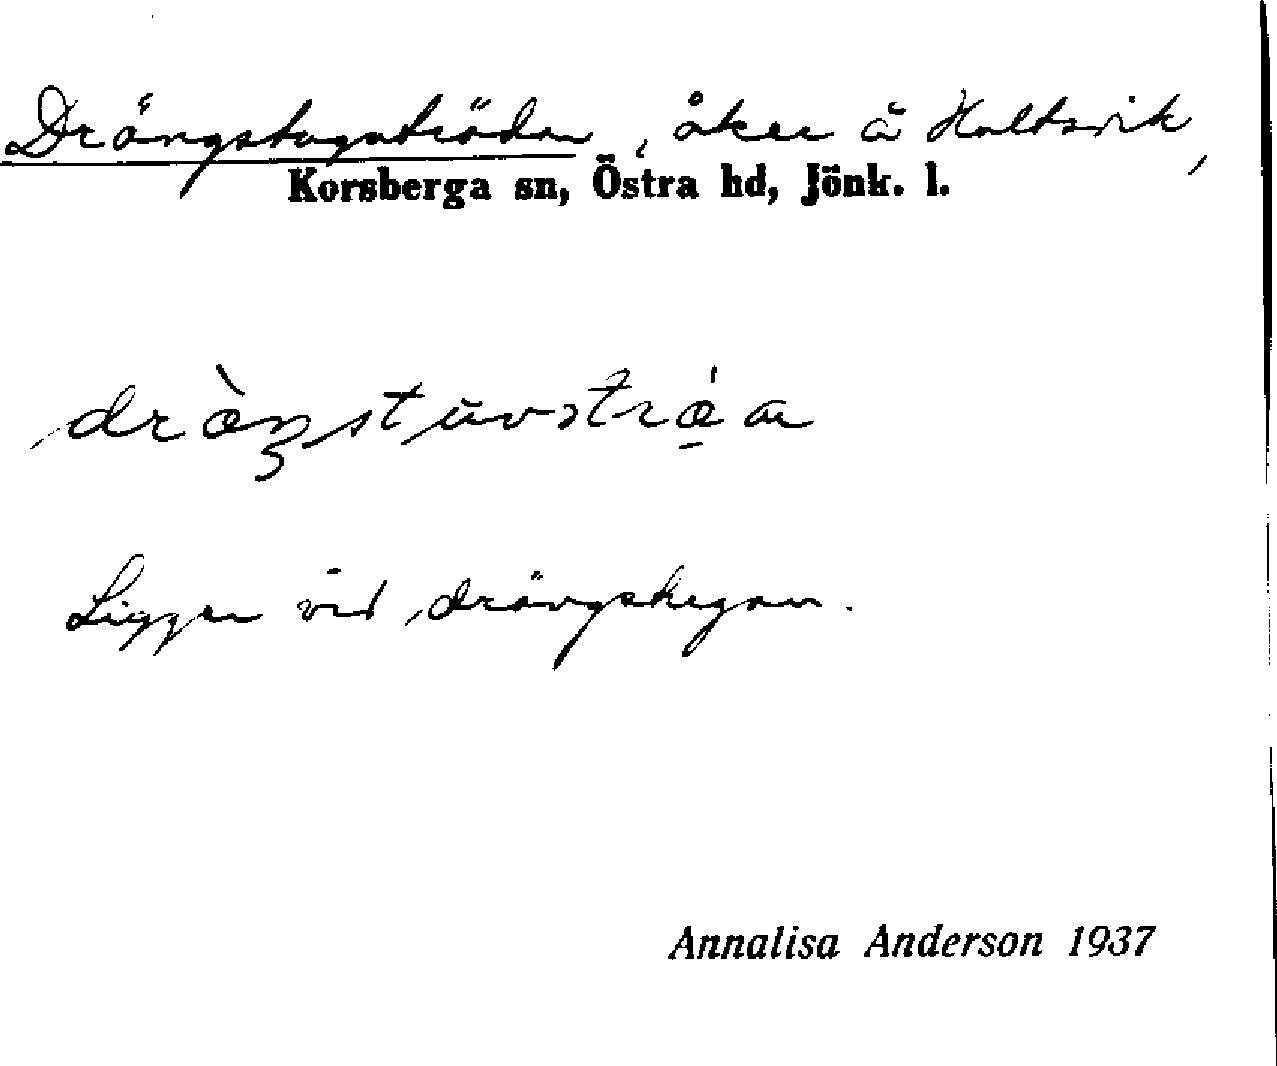 Drängstugutrådan, åker å Holtsvik,
Korsberga sn, Östra hd, Jönk. l.
Ligger vid drängstugan.
Annalisa Anderson 1937